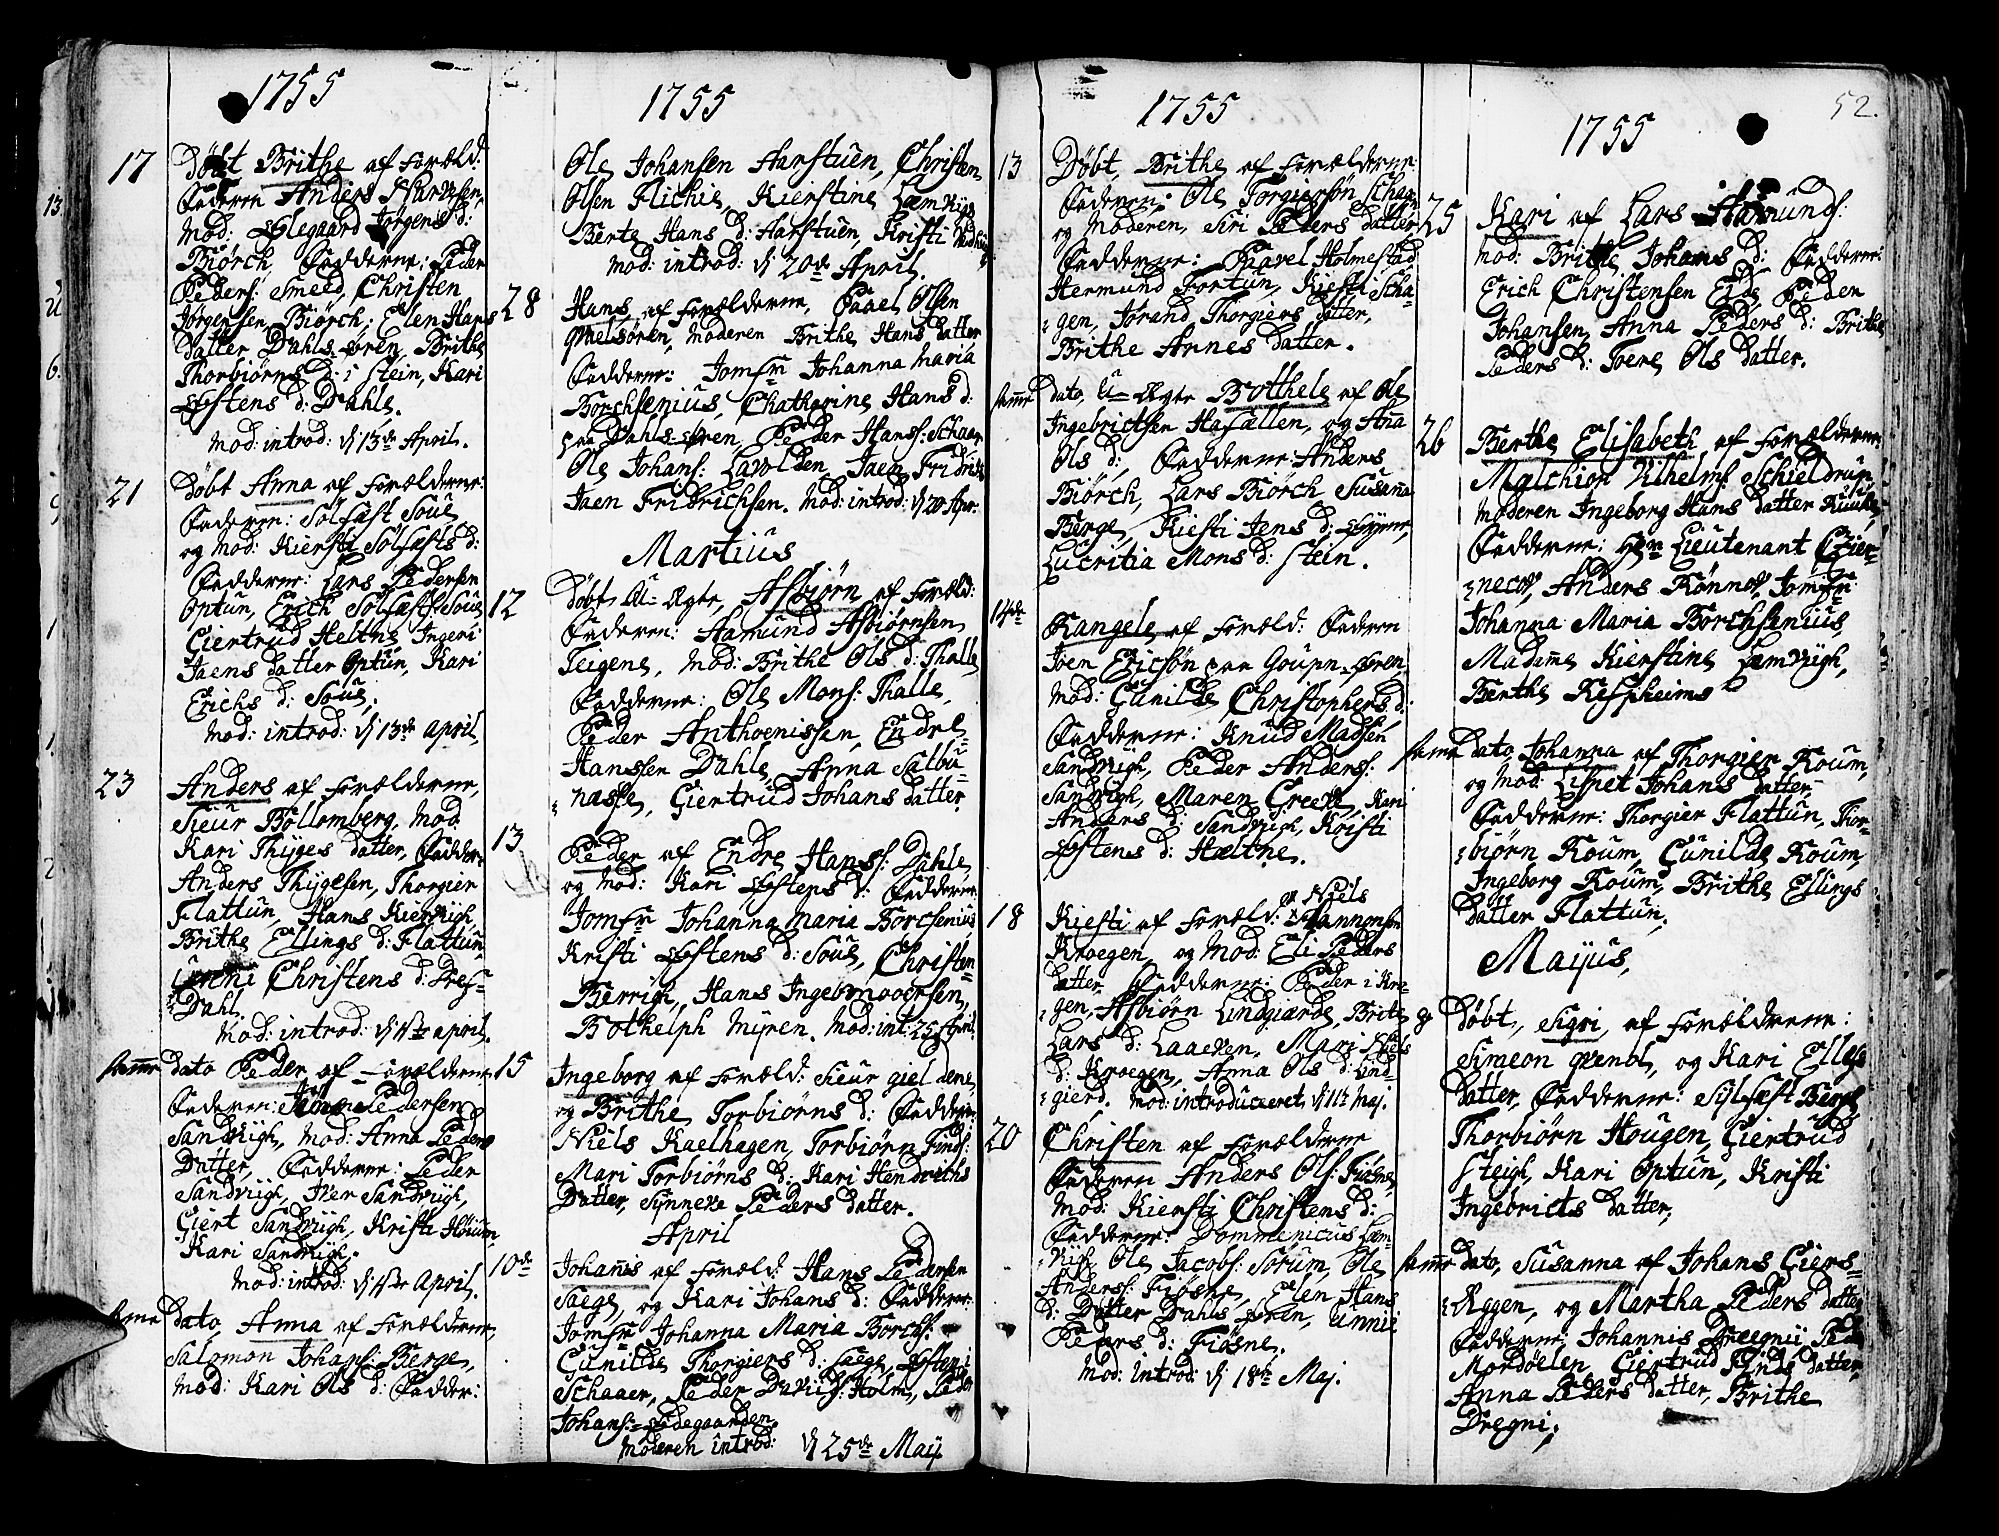 1755
17 Døbt Brithe af foræld:
Faderen Anders
Mod: Jørgens d:
Biørch, Fadderne: Peder
Peders: Smed, Christen
Jørgensen Biørch, Elen Hans
datter Dahls øren, Brithe
Thorbiørns d: i Stein, Kari
d: Dahle.
Mod: introd: d 13de April.
21 Døbt Anna af forælderne:
Faderen: Solfæst Soue
og Mod: Kiersti Solfæsts d:
Fadderne: Lars Pedersen
Optun, Erich Solfæsts: Soue,
Giertrud Heltne, Ingeri
Jaens datter Optun, Kari
Erichs d: Soue,
Mod: introd: d 13de April.
23 Anders af forælderne,
Sieur Bollomberg, Mod:
Kari Thyges datter, Fadder:
Anders Thygesen, Thorgier
Flattun, Hans
Brithe Ellings d: Flattun,
Christens d: Dres-
Dahl.
Mod: introd: d April.
samme dato Peder af forælderne
Faderen: Pedersen
Sandviigh, Mod: Anna Peders
Datter, Fadderne: Peder
Sandviigh, Iver Sandviigh,
Giert Sandviigh, Kristi
Kari Sandviigh.
Mod: introd: d April.
samme dato, Anna af forælderne,
Salomon Johans: Berge,
Mod: Kari Ols d: Fadder:
1755
Ole Johansen Harstuen, Christen
Olsen Flichie, Kierstine Lemviigh
Berte Hans d: Harstuen, Kristi
Mod: introd: d 20de April.
28 Hans af forælderne, Paael Olsen
Qvalsøren, Moderen Brithe Hans datter
Fadderne: Jomfr Johanna Maria
Borchsenius, Chatharine Hans d:
paa Dahls-øren, Peder Hanss: Schaar
Ole Johans: Jaen
Jaen Fridrichsen. Mod: introd: d 20 Apr.
Martius
12 Døbt U-Ægte, Asbiørn af foræld:
Faderen: Aamund Asbiørnsen
Teigene, Mod: Brithe Ols d: Thalle
Fadderne: Ole Mons: Thalle,
Peder Anthoenissen, Endre
Hanssen Dahle, Anna Salbu-
naske, Giertrud Johans datter.
13 Peder af Endre Hanss: Dahle,
og Mod: Kari d: Fadderne:
Jomfr Johanna Maria Borcsenius,
Kristi d: Soue, Christen
Berrigh, Hans
Mod: int: 25 April
15 Ingeborg af foræld: Sieur
og Brithe Torbiørns d: Fadderne:
Niels Kaelhagen, Torbiørn Finds:
Mari Torbiørns d: Kari Hendrichs
Datter, Synneve Peders datter.
April
10de Johannis af foræld: Hans Pedersen
Saege, og Kari Johans d: Fadderne:
Jomfr Johanna Maria Borchs:
Gunilde Thorgiers d: Saege,
Schaaer, Peder Davids: Holm, Peder
Johans:
Moderen introd: d 25de Maij
1755
13 Døbt, Brithe af forælderne:
Faderen: Ole Torgiersøn Schaar
og Moderen, Siri Peders datter
Fadderne: Paavel Holmestad
Hermund Fortun, Kiesti Scha-
gen, Jorand Thorgiers datter,
Brithe Annes datter.
samme dato, U-Ægte Bothele af Ole
Ingebrictsen og Anna
Ols d: Fadderne: Anders
Biørch, Lars Biørch Susanna
Berge, Kiesti Jens d:
Lucritia Mons d: Stein.
14de Rangele af foræld: Faderen
Joen Ericsøn paa Goupn-øren,
Mod: Gunilde Christophers d:
Fadderne: Knud Madsen
Sandviigh, Peder Anders:
Sandviigh, Maren Kari
Anders d: Sandviigh, Kristi
d: Hæltne.
18 Kiesti af foræld: Niels
Kroegen, og Mod: Eli Peders
datter, Fadderne: Peder i Kro-
gen, Asbiørn Lindgiærde, Brite
Lars d: Laaeven. Mari Niels
d: Kroegen, Anna Ols d: Lind-
gierd. Mod: introduceret d 11te Maj.
20 Christen af forælderne
Faderen Anders Ols: Fiøsne,
Mod: Kiersti Christens d:
Fadderne: Dommenicus Lem-
viigh Ole Jacobs: Sorum, Ole
Anders: Fiøsne, Elen Hans
d: Datter Dahls øren, Unnii
Peders d: Fiøsne.
Mod: introd: d 18te Maj.
52.
1755
25 Kari af Lars Aamunds:
Mod: Brithe Johans d: Fadderne:
Erich Christensen Eide Peder
Johansen, Anna Peders d: Brithe
Peders d: Tore Ols datter.
26 Berthe Elisabeth af forælderne
Malchior Vilhelms: Schieldrup
Moderen Ingeborg Hans datter
Fadderne: Hr Lieutenant
Anders Rønnov, Jomfr:
Johanna Maria Borchsenius,
Madame Kierstine Lemviigh,
Berthe
samme dato Johanna af Thorgier Roum,
og Mod: Lisbet Johans datter,
Fadderne: Thorgier Flattun, Thor-
biørn Roum, Gunilde Roum,
Ingeborg Roum, Brithe Ellings
datter Flattun.
Mayus,
8 Døbt, Sigri, af forælderne:
Simeon og Kari Ellefs
datter, Fadderne: Sylfæst Berge
Thorbiørn Hougen, Giertrud
Steigh, Kari Optun, Kristi
Ingebricts datter,
samme dato, Susanna af Johans Giers-
og Martha Peders datter
Fadderne: Johannis Dregnii Peder
Mordøelen, Giertrud Finds datter,
Anna Peders datter, Brithe
Dregni.